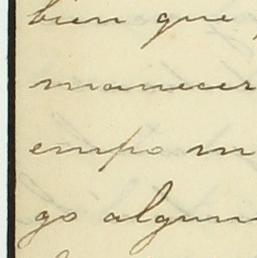 bien que
manecer
empo m
go algun